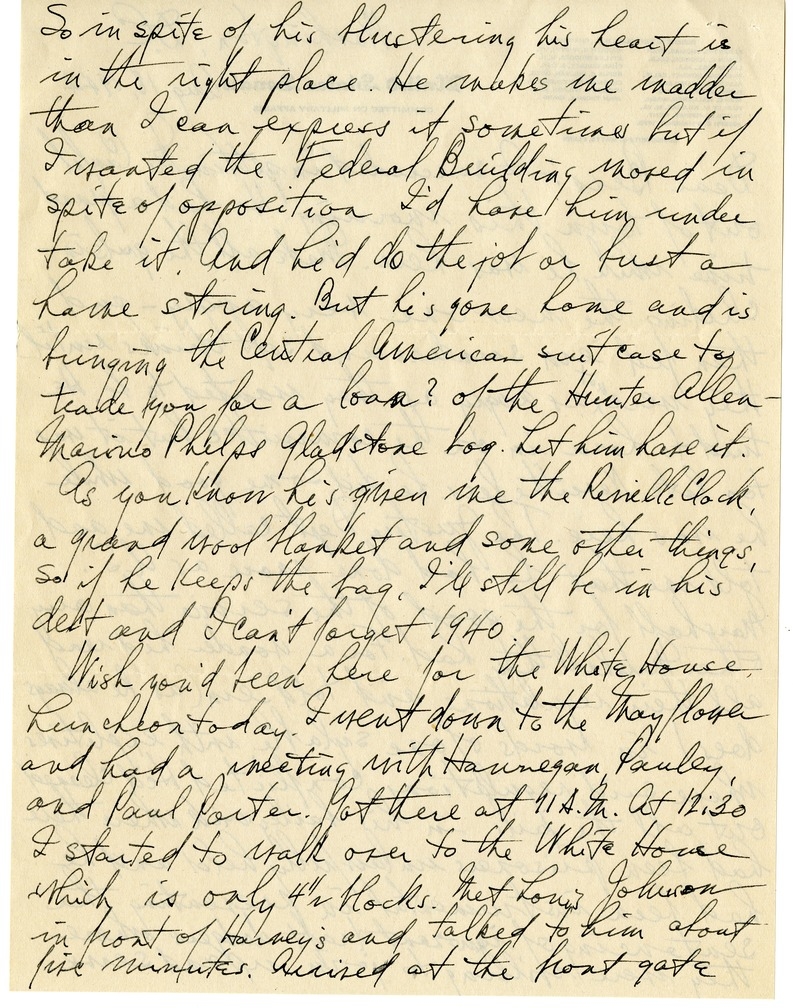 So in spite of his blustering his heart is
in the right place. He makes me madder
than I can express it sometimes but if
I wanted the Federal Building moved in
spite of opposition I'd have him under
take it. And he'd do the job or bust a
hame string. But he's gone home and is
bringing the Central American suit case to
trade you for a loan? of the Hunter Allen-
Phelps Gladstone bag. Let him have it.
As you know he's given me the Reveille Clock,
a grand wool blanket and some other things,
so if he keeps the bag, I'll still be in his
debt and I can't forget 1940.
Wish you'd been here for the White House
luncheon today. I went down to the Mayflower
and had a meeting with Hannegan, Pauley,
and Paul Porter. Got there at 11 A.M. At 12:30
I started to walk over to the White House
which is only 4 1/2 blocks. Met Louis Johnson
in front of Harvey's and talked to him about
five minutes. Arrived at the front gate